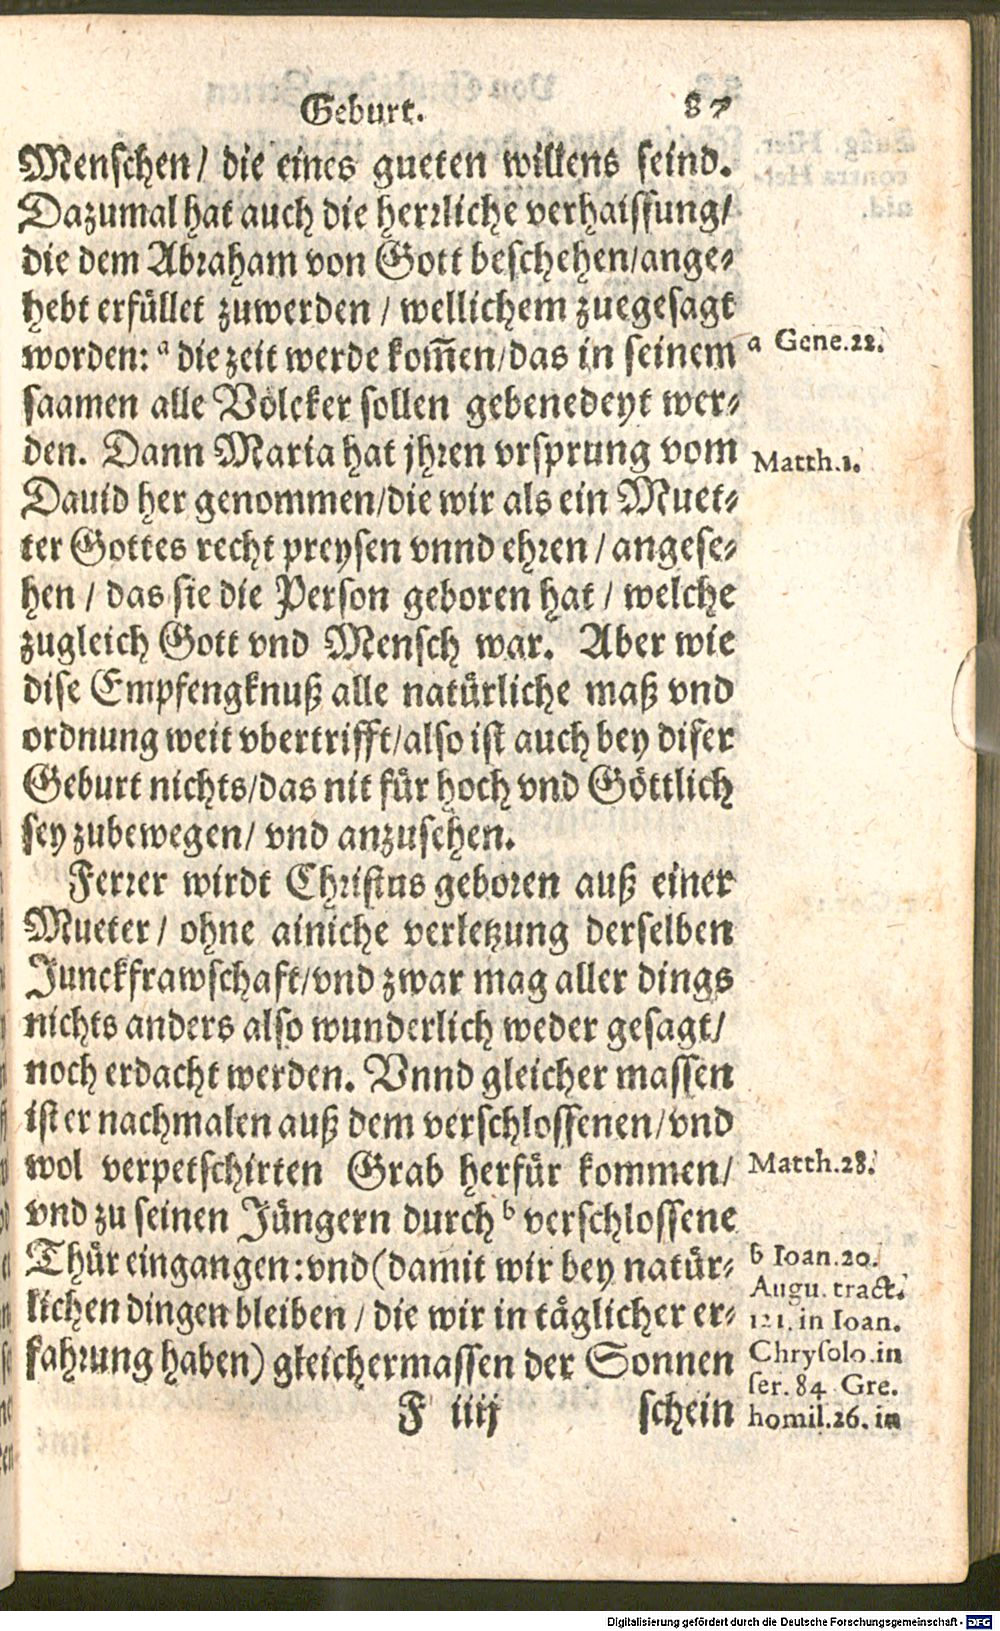 Geburt. 87
Menschen/ die eines gueten willens seind.
Dazumal hat auch die herrliche verhaissung/
die dem Abraham von Gott beschehen/ange-
hebt erfüllet zuwerden / wellichem zuegesagt
worden: a die zeit werde kom̃en/das in seinem
a Gene.22.
saamen alle Völcker sollen gebenedeyt wer-
den. Dann Maria hat jhren vrsprung vom
Matth.1.
Dauid her genommen/die wir als ein Muet-
ter Gottes recht preysen vnnd ehren / angese-
hen / das sie die Person geboren hat / welche
zugleich Gott vnd Mensch war. Aber wie
dise Empfengknuß alle natürliche maß vnd
ordnung weit vbertrifft/also ist auch bey diser
Geburt nichts/das nit für hoch vnd Göttlich
sey zubewegen/ vnd anzusehen.
Ferrer wirdt Christus geboren auß einer
Mueter/ ohne ainiche verletzung derselben
Junckfrawschaft/vnd zwar mag aller dings
nichts anders also wunderlich weder gesagt/
noch erdacht werden. Vnnd gleicher massen
ist er nachmalen auß dem verschlossenen/vnd
wol verpetschirten Grab herfür kommen/
Matth.28.
vnd zu seinen Jüngern durch b verschlossene
Thür eingangen:vnd (damit wir bey natür-
lichen dingen bleiben / die wir in täglicher er-
fahrung haben) gleichermassen der Sonnen
b Ioan.20.
Augu. tract.
121. in Ioan.
Chrysolo.in
ser. 84 Gre.
homil.26. in
F iiij schein
Digitalisierung gefördert durch die Deutsche Forschungsgemeinschaft - DFG